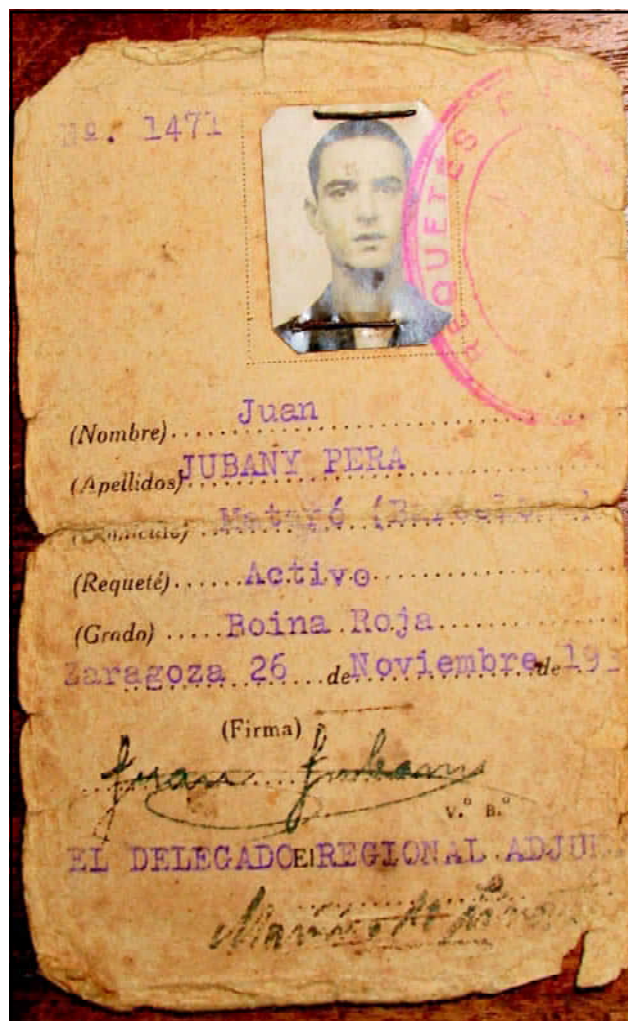 Nº. 1471
REQUETÉS
(Nombre) Juan
(Apellidos) JUBANY PERA
Mataró
(Requeté) Activo
(Grado) Boina Roja
Zaragoza 26 de Noviembre de 19
(Firma)
Juan Jubany
V.º B.º
EL DELEGADO El REGIONAL ADJUN